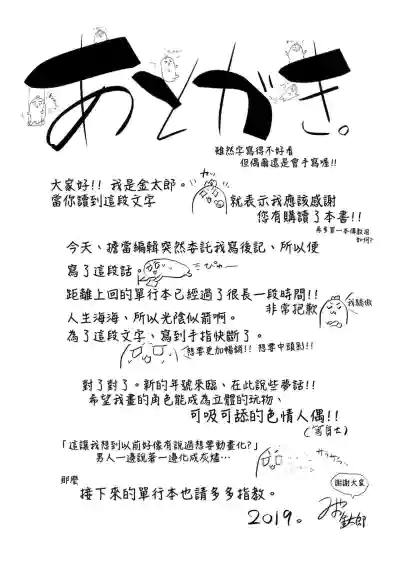 あとがき。
雖然字寫得不好看
但偶爾還是會手寫喔!!
大家好!! 我是金太郎。
當你讀到這段文字
就表示我應該感謝
您有購讀了本書!!
希多買一本傳教用
如何?
今天、擔當編輯突然委託我寫後記、所以便
寫了這段話。
ぴゅー
距離上回的單行本已經過了很長一段時間!!
非常抱歉
我驕傲
人生海海、所以光陰似箭啊。
為了這段文字、寫到手指快斷了。
想要更加暢銷!! 想要中頭彩!!
對了對了。新的年號來臨、在此說些夢話!!
希望我畫的角色能成為立體的玩物、
可吸可舔的色情人偶!!
「這讓我想到以前好像有說過想要動畫化?」
男人一邊說著一邊化成灰燼…
那麼
接下來的單行本也請多多指教。
謝謝大家
2019。
金太郎